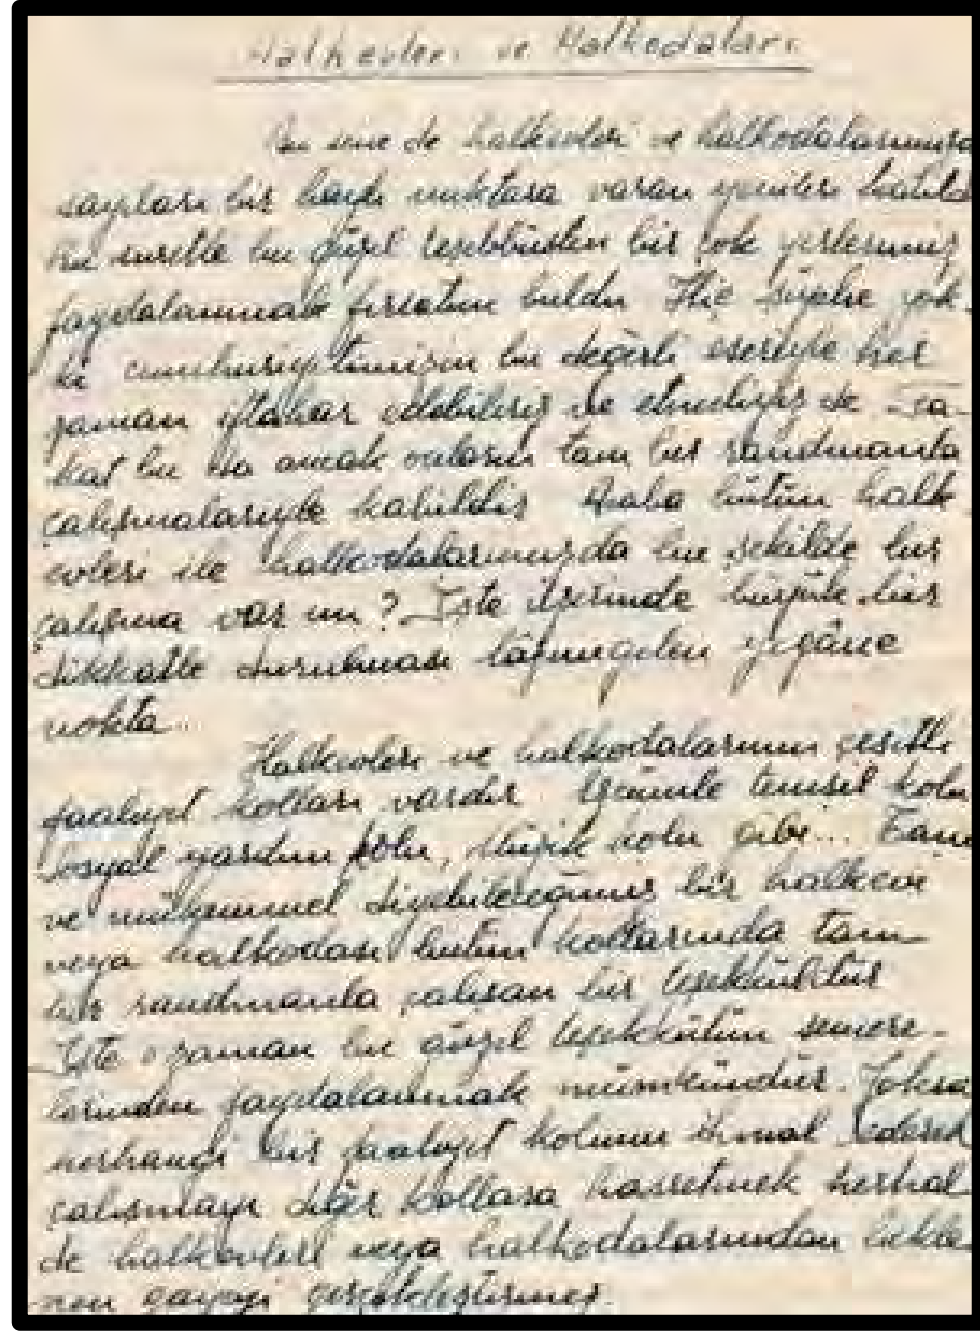 Halkevleri ve Halkodaları
Bu sene de halkevleri ve halkodalarımıza
sayıları bir hayli miktara varan yenileri katıldı
Bu suretle bu güzel teşebbüsten bir çok yerlerimiz
faydalanmak fırsatını buldu Hiç şüphe yok
ki cumhuriyetimizin bu değerli eseriyle her
zaman iftihar edebiliriz ve etmeliyiz de Fa-
kat bu da ancak onların tam bir randımanla
çalışmalariyle kabildir Acaba bütün halk
evleri ile halkodalarımızda bu şekilde bir
çalışma var mı? İşte üzerinde büyük bir
dikkatle durulması lâzımgelen yegâne
nokta..
Halkevleri ve halkodalarının çeşitli
faaliyet kolları vardır. temsil kolu
Sosyal yardım kolu, Müzik kolu gibi... Tam
ve mükemmel diyebileceğimiz bir halkevi
veya halkodası bütün kollarında tam
bir randımanla çalışan bir teşekküldür
İşte o zaman bu güzel teşekkülün semere-
lerinden faydalanmak mümkündür. Yoksa
herhangi bir faaliyet kolunu ihmal ederek
çalışmayı diğer kollara hasretmek herhal
de halkevleri veya halkodalarından bekle
nen gayeyi gerçekleştirmez.